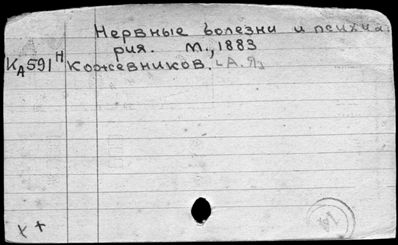 Нервные болезни и психиа
рия. М., 1883
КА591Н Кожевников. [А. Я.]
14